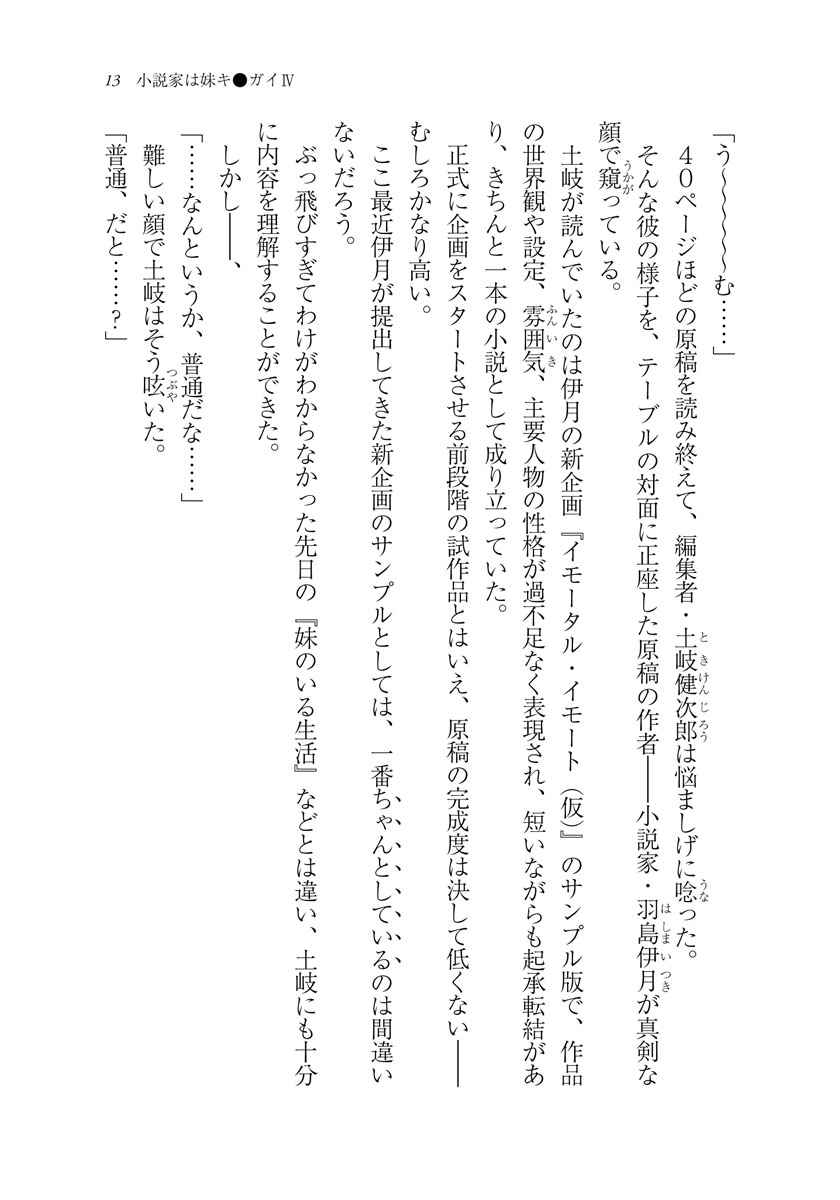 13　小説家は妹キ●ガイⅣ
「う～～～～～む……」
　４０ページほどの原稿を読み終えて、編集者・土岐健次郎は悩ましげに唸った。
　そんな彼の様子を、テーブルの対面に正座した原稿の作者――小説家・羽島伊月が真剣な
顔で窺っている。
　土岐が読んでいたのは伊月の新企画『イモータル・イモート（仮）』のサンプル版で、作品
の世界観や設定、雰囲気、主要人物の性格が過不足なく表現され、短いながらも起承転結があ
り、きちんと一本の小説として成り立っていた。
　正式に企画をスタートさせる前段階の試作品とはいえ、原稿の完成度は決して低くない――
むしろかなり高い。
　ここ最近伊月が提出してきた新企画のサンプルとしては、一番ちゃんとしているのは間違い
ないだろう。
　ぶっ飛びすぎてわけがわからなかった先日の『妹のいる生活』などとは違い、土岐にも十分
に内容を理解することができた。
　しかし――、
「……なんというか、普通だな……」
　難しい顔で土岐はそう呟いた。
「普通、だと……？」